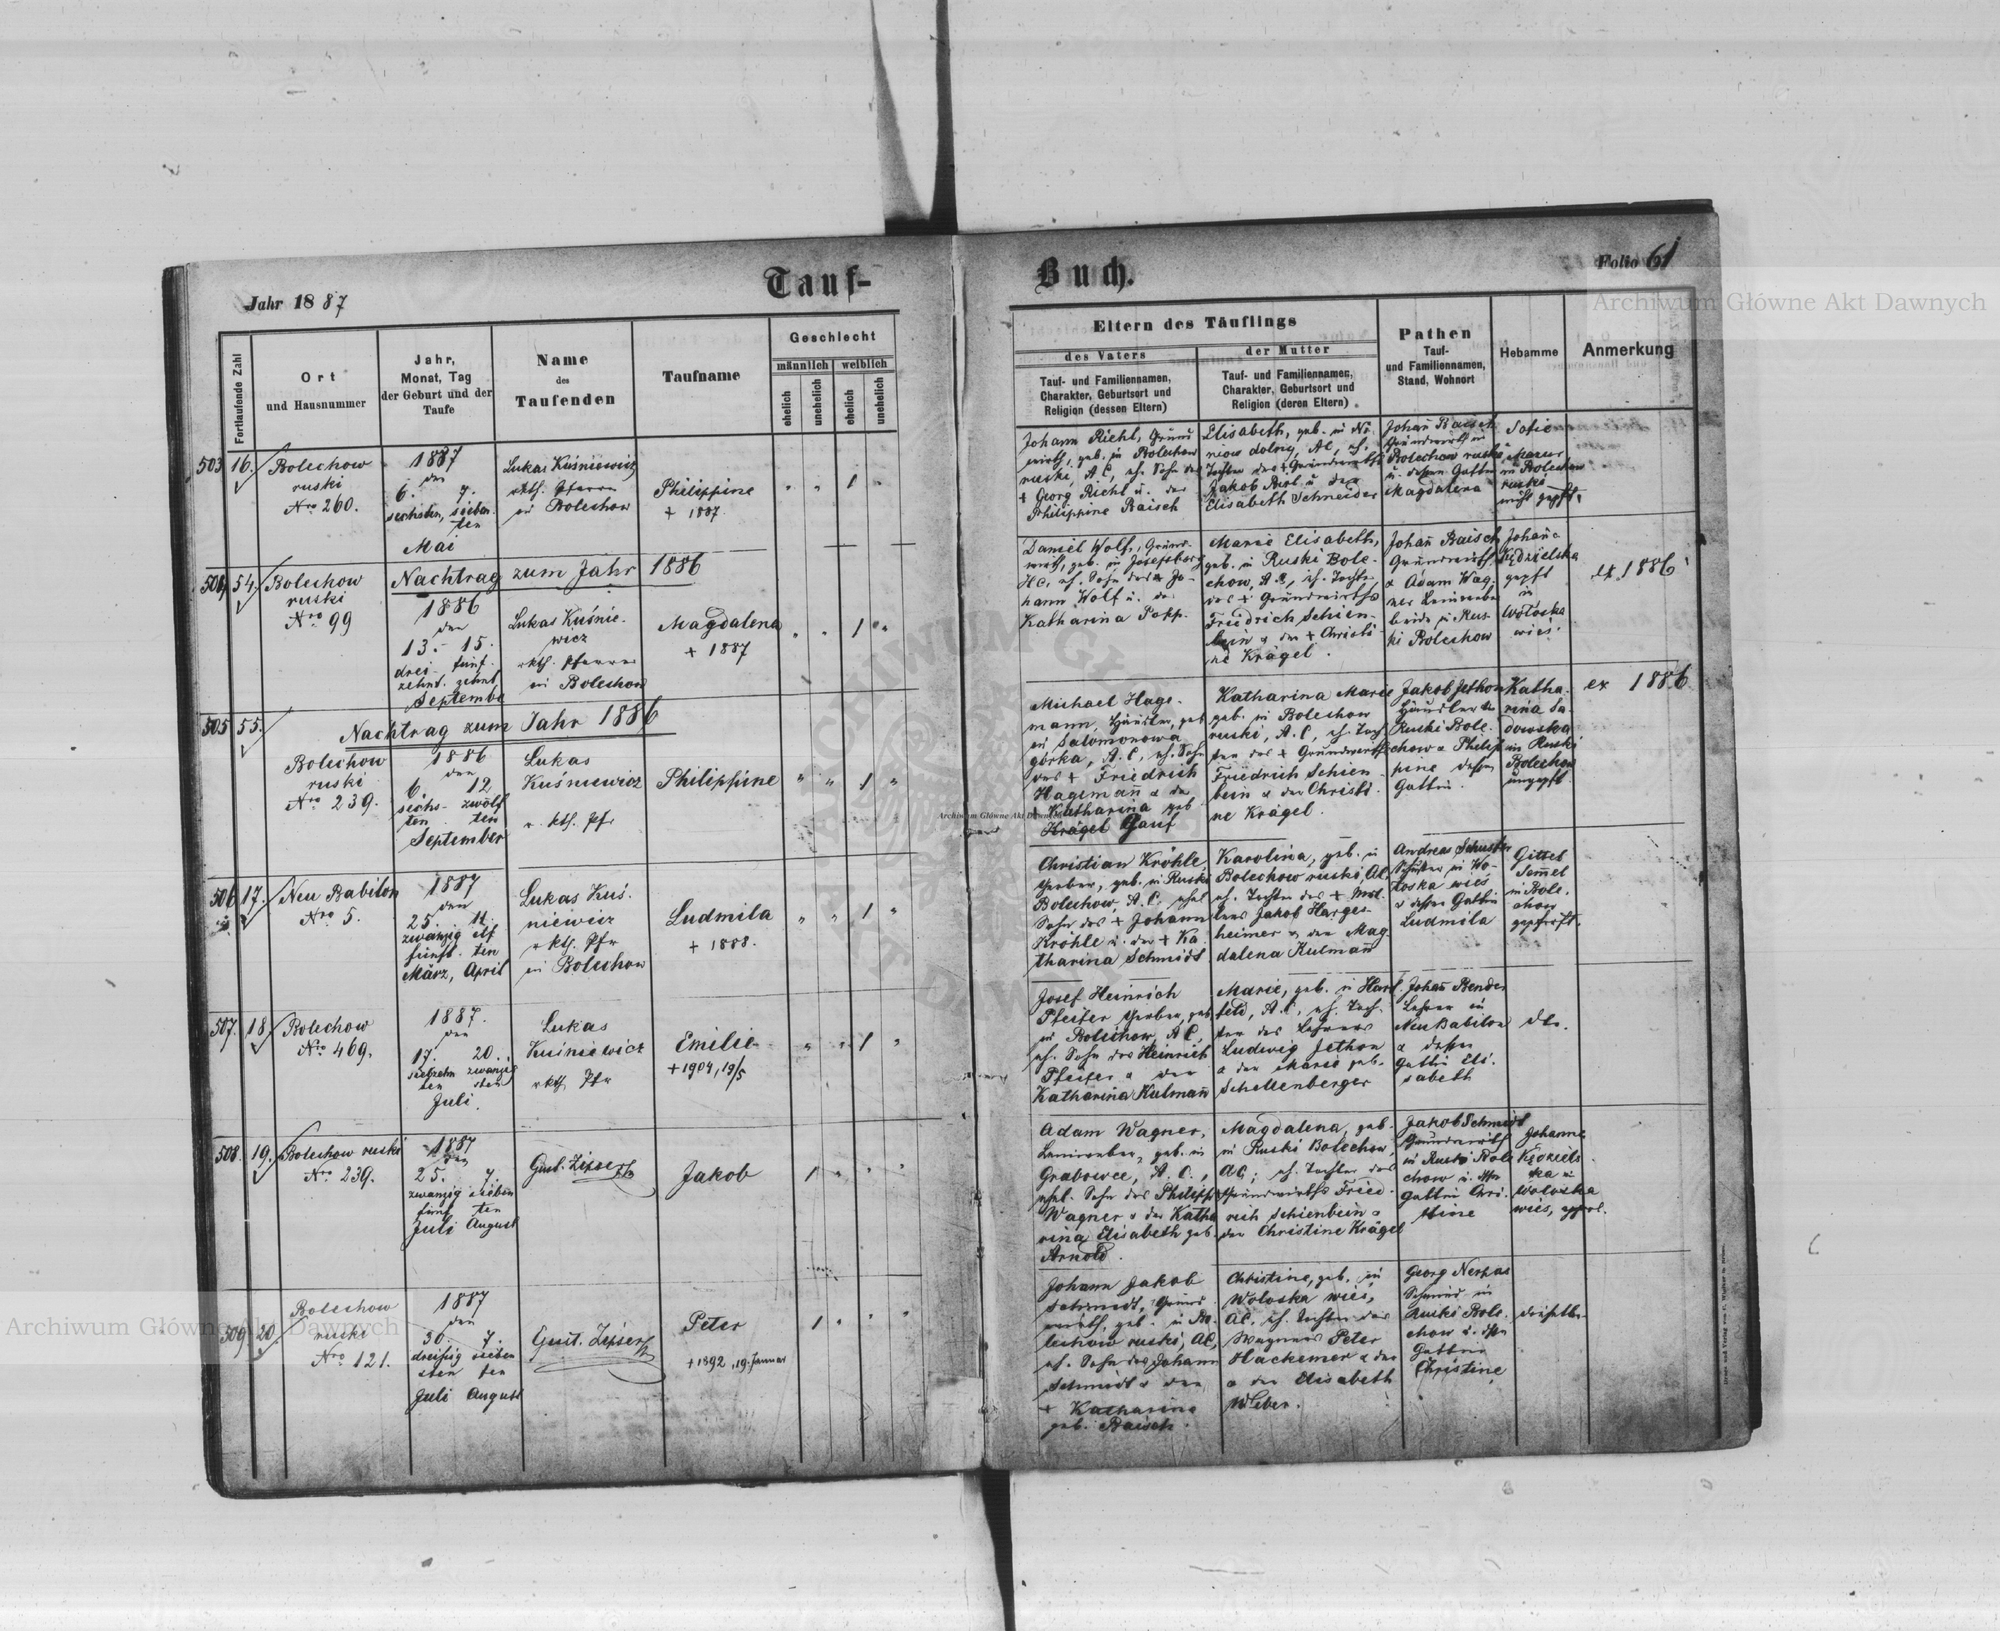 Tauf-
Buch.
Jahr 1887
Folio 61
Fortlaufende Zahl
Ort
und Hausnummer
Jahr,
Monat, Tag
der Geburt und der
Taufe
Name
des
Taufenden
Taufname
Geschlecht
männlich weiblich
ehelich
unehelich
ehelich
unehelich
Eltern des Täuflings
des Vaters
der Mutter
Tauf- und Familiennamen,
Charakter, Geburtsort und
Religion (dessen Eltern)
Tauf- und Familiennamen,
Charakter, Geburtsort und
Religion (deren Eltern)
Pathen
Tauf-
und Familiennamen,
Stand, Wohnort
Hebamme
Anmerkung
503 16.
Bolechow
ruski
Nro 260.
1887
den
6. 7.
sechsten, sieben
ten
Mai
Lukas Kuśniewicz
rkth. Pfarrer
in Bolechow
Philippine
+ 1887
" " 1 "
Johann Richl, Grund
wirth, geb. in Bolechow
ruski, A.C., eh. Sohn des
+ Georg Richl u. der
Philippine Baisch
Elisabeth, geb. in
dolny, AC, eh.
Tochter des + Grundwirths
Jakob u. der
Elisabeth Schneider
Johañ Baisch
Grundwirth in
Bolechow ruski
u. dessen Gattin
Magdalena
Sofie
Mazur
in Bolechow
ruski
nicht gepft.
504 54.
Bolechow
ruski
Nro 99
Nachtrag zum Jahr 1886
1886
den
13. 15.
drei- fünf-
zehnt. zehnt.
September
Lukas Kuśnie-
wicz
rkth. Pfarrer
in Bolechow
Magdalena
+ 1887
" " 1 "
Daniel Wolf, Grund-
wirth, geb. in Josefsberg
HC, eh. Sohn des Jo-
hann Wolf u. der
Katharina Popp.
Marie Elisabeth,
geb. in Ruski Bole-
chow, A.C., eh. Tochter
des + Grundwirths
Friedrich Schien-
bein & der + Christi-
ne Krägel.
Johañ Baisch
Grundwirth
& Adam Wag-
ner
beide in Rus-
ki Bolechow
Johana
Kędzielska
gepft
in
Wołoska
wieś.
ex 1886
505 55.
Nachtrag zum Jahr 1886
Bolechow
ruski
Nro 239.
1886
den
6. 12.
sechs- zwölf
ten ten
September
Lukas
Kuśniewicz
r. kth. Pfr
Philippine
" " 1 "
Michael Hage-
mann, Häusler, geb
in Salomonowa
górka, A.C., eh. Sohn
des + Friedrich
Hagemañ & der
+ Katharina geb
Krägel Gauf
Katharina Marie
geb. in Bolechow
ruski, A.C., eh. Toch-
ter des + Grundwirths
Friedrich Schien-
bein & der Christi-
ne Krägel.
Jakob Jethon
Häusler in
Ruski Bole-
chow & Philip-
pine dessen
Gattin.
Katha-
rina Sa-
dowska
in Ruski
Bolechow
ungepft
ex 1886
506 17.
Neu Babilon
Nro 5.
1887
den
25. 11.
zwanzig elf
fünft. ten
März, April
Lukas Kuś-
niewicz
rkth. Pfr
in Bolechow
Ludmila
+ 1888.
" " 1 "
Christian Kröhle,
Gerber, geb. in Ruski
Bolechow, A.C., ehel
Sohn des + Johann
Kröhle u. der + Ka-
tharina Schmidt
Karolina, geb. in
Bolechow ruski, AC,
eh. Tochter des + Mül-
lers Jakob Harges-
heimer & der Mag-
dalena Kulmañ
Andreas Schuster
Schuster in Wo-
łoska wieś
& dessen Gattin
Ludmila
Gittel
Semel
in Bole-
chow
geprüft.
507. 18.
Bolechow
Nro 469.
1887.
den
17. 20.
siebzehn zwanzig
ten sten
Juli.
Lukas
Kuśniewicz
rkth Pfr
Emilie
+ 1904, 19/5
" " 1 "
Josef Heinrich
Pfeifer Gerber, geb
in Bolechow, A.C.,
eh. Sohn des Heinrich
Pfeifer & der
Katharina Kulmañ
Marie, geb. in Hart-
feld, A.C., eh. Toch-
ter des Lehrers
Ludwig Jethon
& der Marie geb.
Schellenberger
Johañ Bender
Lehrer in
Neu Babilon
& dessen
Gattin Eli-
sabeth
dto.
508. 19.
Bolechow ruski
Nro 239.
1887
den
25. 7.
zwanzig sieben
fünf ten
Juli August
Gust. Zipser
Jakob
1 " " "
Adam Wagner,
geb. in
Grabowce, A.C.,
ehel. Sohn des Philipp
Wagner & der Katha
rina Elisabeth geb.
Arnold.
Magdalena, geb.
in Ruski Bolechow,
AC; eh. Tochter des
Grundwirths Fried-
rich Schienbein &
der Christine Krägel
Jakob Schmidt
Grundwirth
in Ruski Bole
chow u. dssn
Gattin Chri-
stine
Johanna
Kędziels-
ka in
Wołoska
wieś,
509. 20.
Bolechow
ruski
Nro 121.
1887
den
30. 7.
dreißig sieben
sten ten
Juli August
Gust. Zipser
Peter
+ 1892, 19. Januar
1 " " "
Johann Jakob
Schmidt, Grund
wirth, geb. in Bo-
lechow ruski, AC,
eh. Sohn des Johann
Schmidt & der
+ Katharina
geb. Baisch.
Christine, geb. in
Woloska wieś,
AC. eh. Tochter des
Wagners Peter
Hackemer & der
& der Elisabeth
Weber.
Georg Nerbas
Schmied in
Ruski Bole-
chow u. dssn
Gattin
Christine
dieselbe
Archiwum Główne Akt Dawnych
Archiwum Główne Akt Dawnych
Archiwum Główne Akt Dawnych